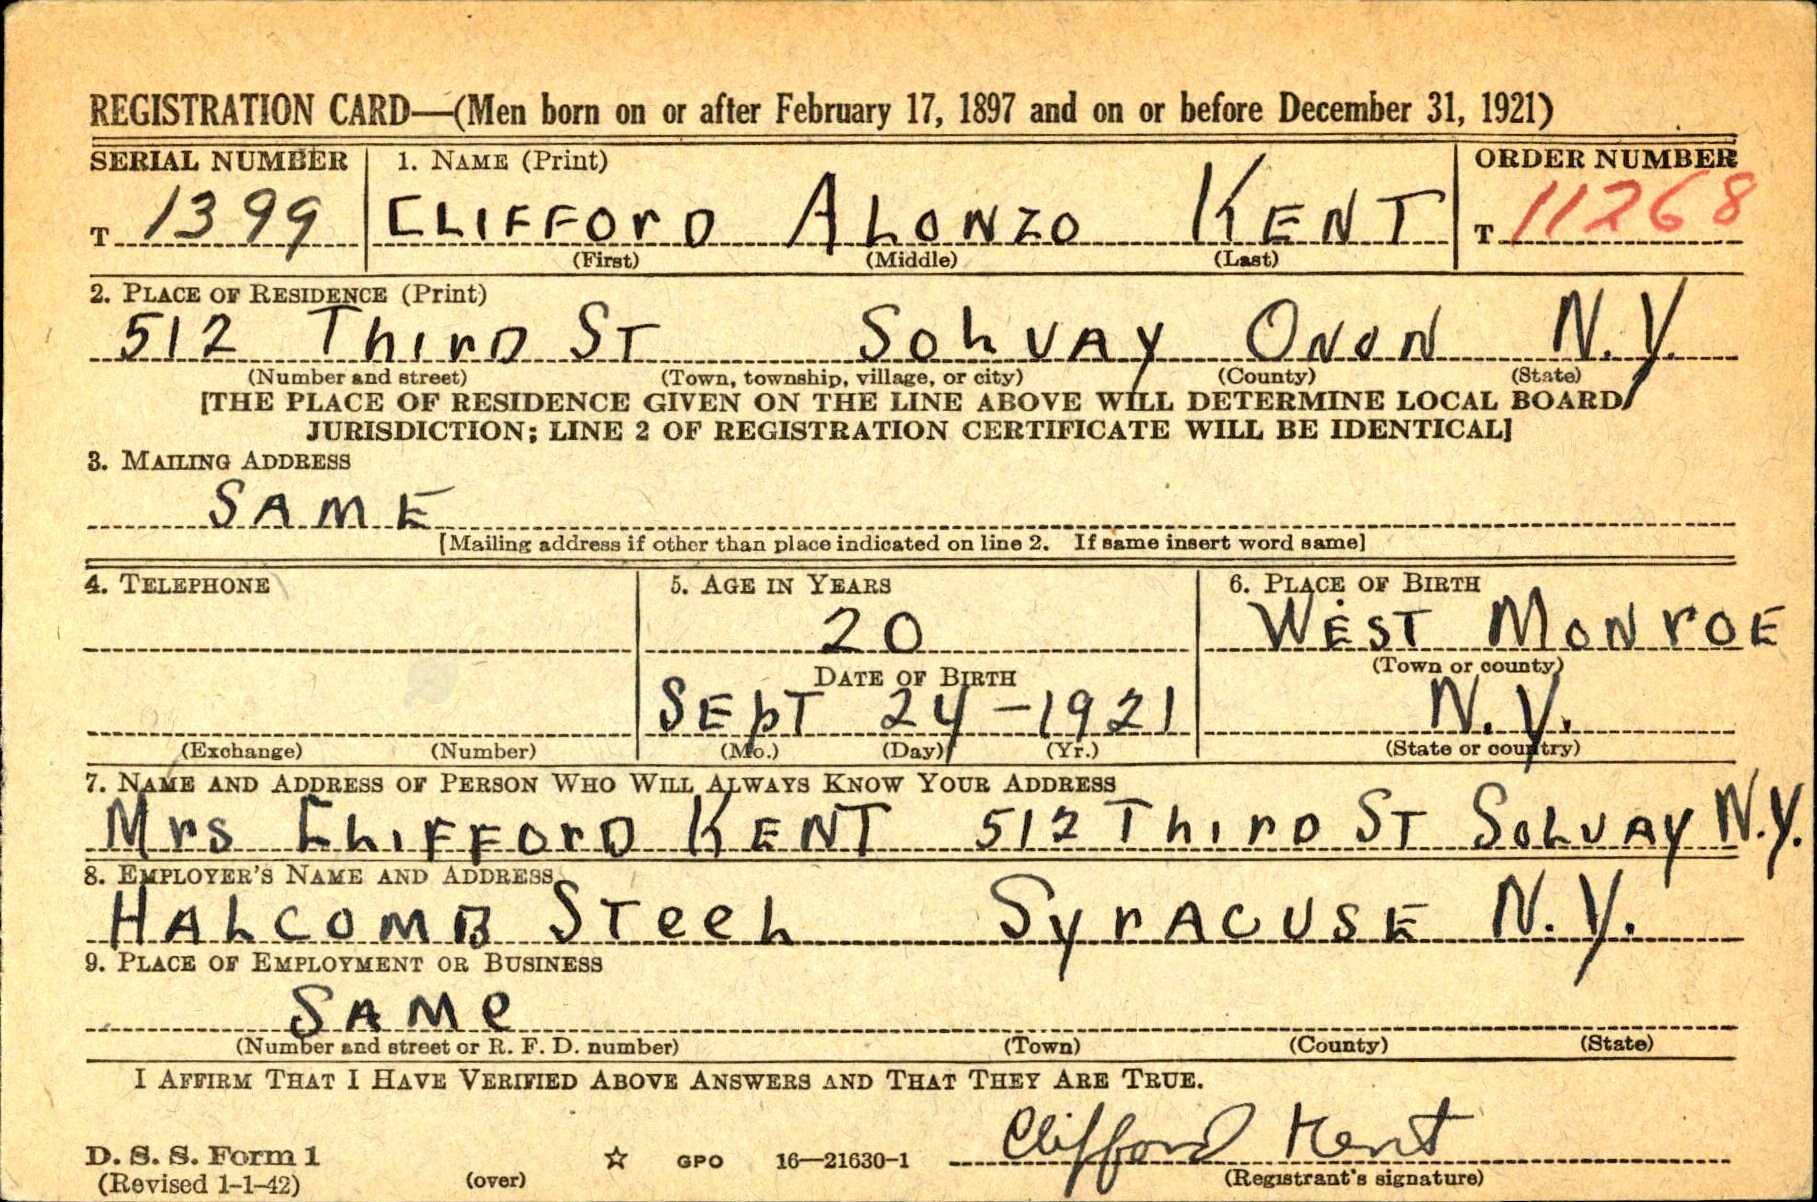 REGISTRATION CARD—(Men born on or after February 17, 1897 and on or before December 31, 1921)
SERIAL NUMBER 1. NAME (Print) ORDER NUMBER
T 1399 CLIFFORD ALONZO KENT T 11268
(First) (Middle) (Last)
2. PLACE OF RESIDENCE (Print)
512 Third ST SOLVAY ONON N.Y.
(Number and street) (Town, township, village, or city) (County) (State)
[THE PLACE OF RESIDENCE GIVEN ON THE LINE ABOVE WILL DETERMINE LOCAL BOARD
JURISDICTION; LINE 2 OF REGISTRATION CERTIFICATE WILL BE IDENTICAL]
3. MAILING ADDRESS
SAME
[Mailing address if other than place indicated on line 2. If same insert word same]
4. TELEPHONE 5. AGE IN YEARS 6. PLACE OF BIRTH
20 WEST MONROE
DATE OF BIRTH (Town or county)
SEPT 24-1921 N.Y.
(Exchange) (Number) (Mo.) (Day) (Yr.) (State or country)
7. NAME AND ADDRESS OF PERSON WHO WILL ALWAYS KNOW YOUR ADDRESS
Mrs CLIFFORD KENT 512 Third ST SOLVAY N.Y.
8. EMPLOYER'S NAME AND ADDRESS
HALCOMB STeel SYRACUSE N.Y.
9. PLACE OF EMPLOYMENT OR BUSINESS
SAMe
(Number and street or R. F. D. number) (Town) (County) (State)
I AFFIRM THAT I HAVE VERIFIED ABOVE ANSWERS AND THAT THEY ARE TRUE.
Clifford Kent
D. S. S. Form 1
(Revised 1-1-42) (over) ☆ GPO 16—21630-1 (Registrant's signature)